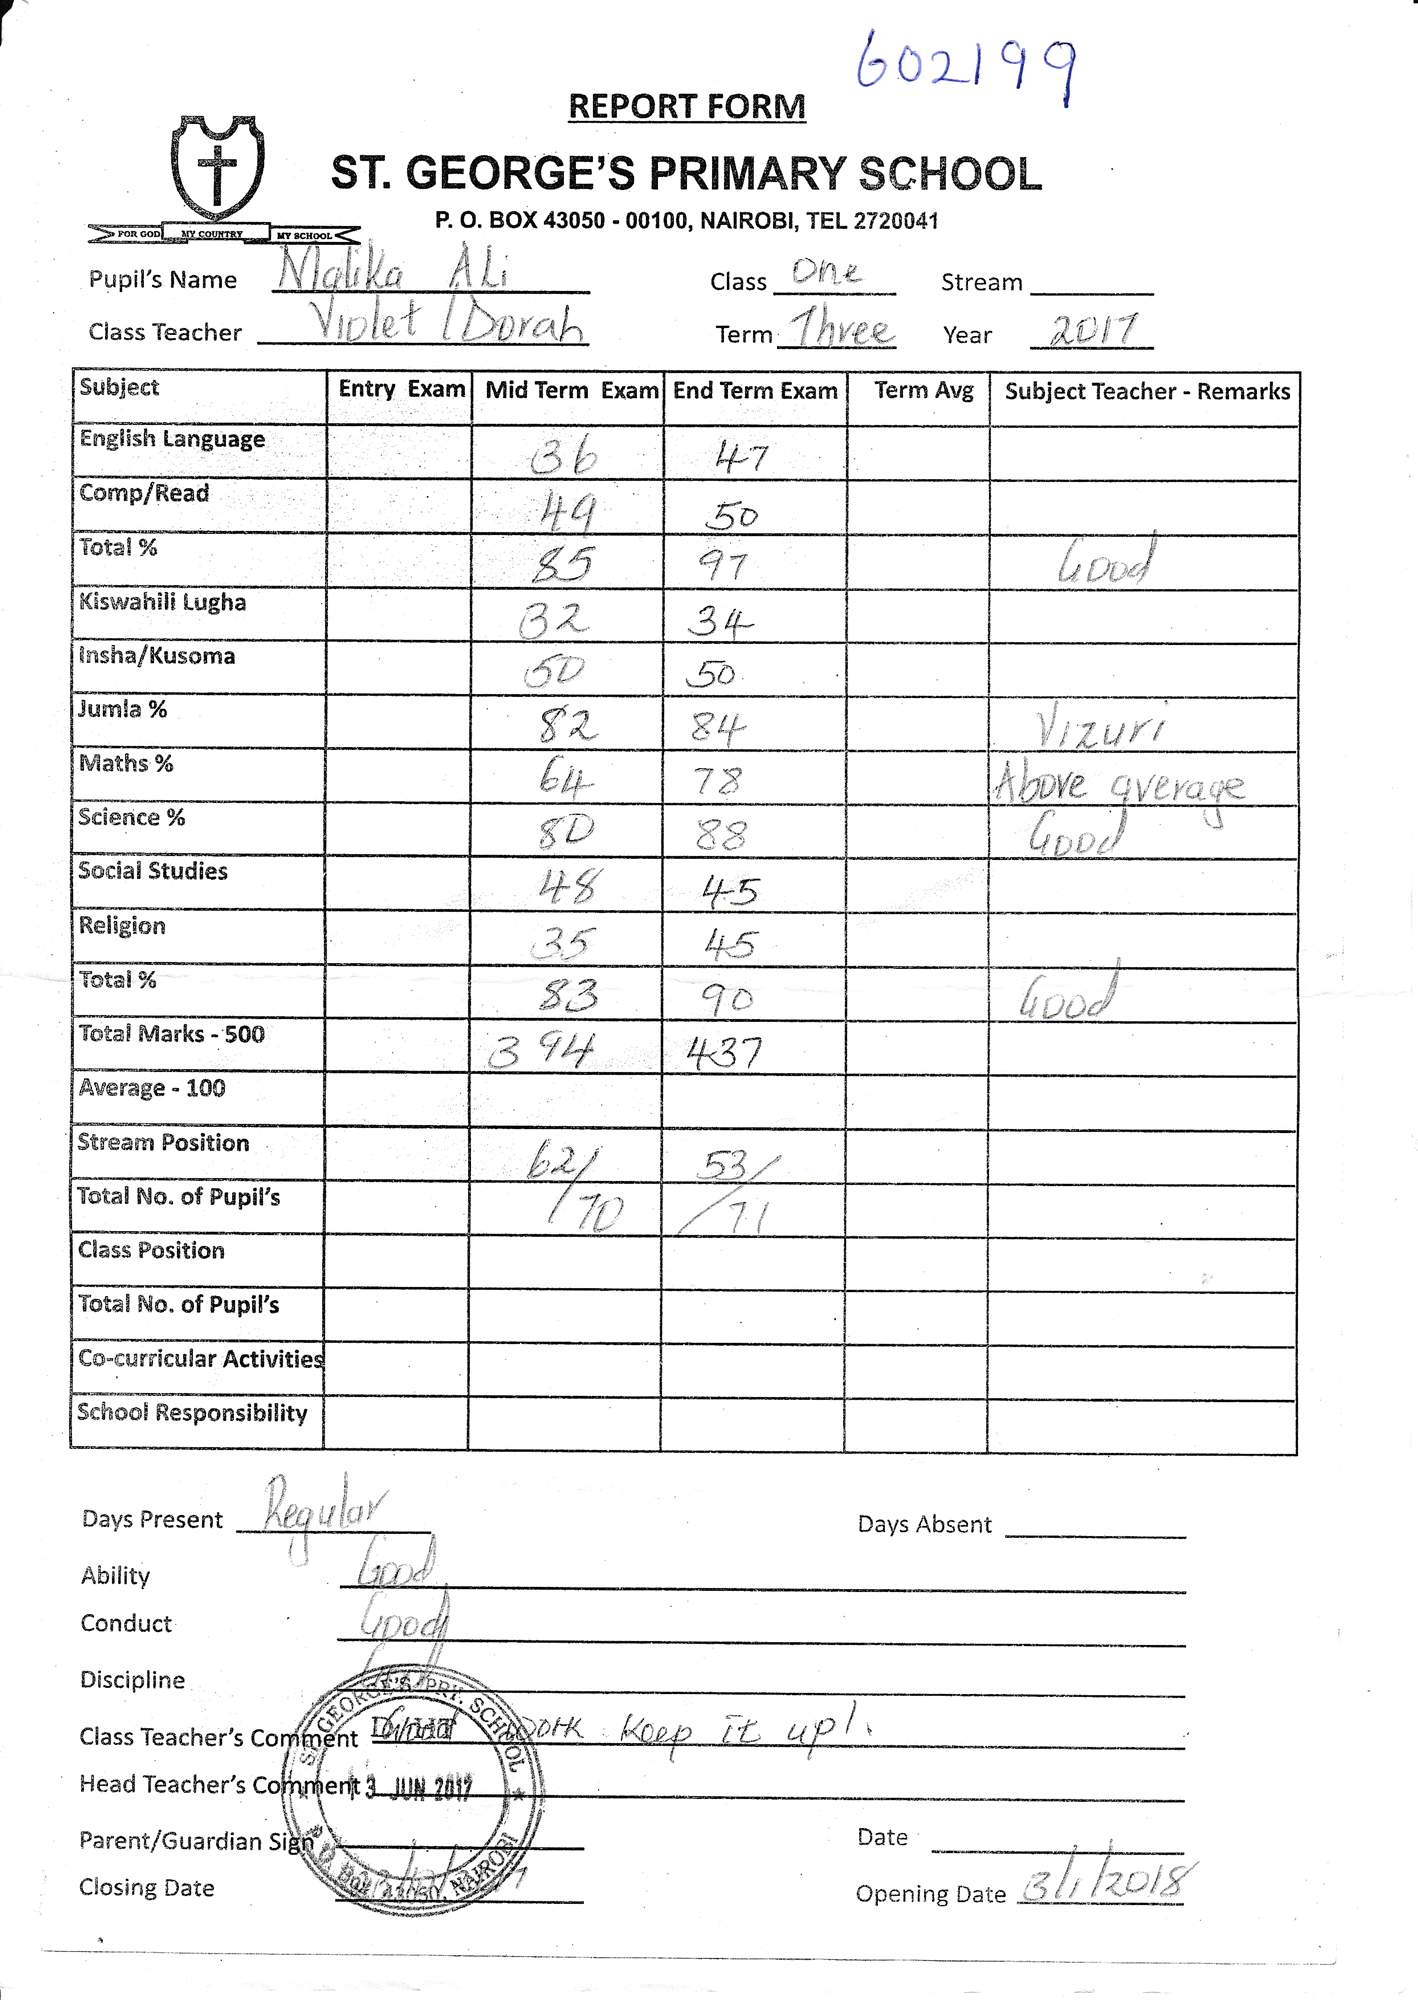 602199
REPORT FORM
ST. GEORGE'S PRIMARY SCHOOL
P. O. BOX 43050 - 00100, NAIROBI, TEL 2720041
FOR GOD MY COUNTRY MY SCHOOL
Pupil's Name Malika Ali Class One Stream
Class Teacher Violet/Dorah Term Three Year 2017
Subject Entry Exam Mid Term Exam End Term Exam Term Avg Subject Teacher - Remarks
English Language 36 47
Comp/Read 49 50
Total % 85 97 Good
Kiswahili Lugha 32 34
Insha/Kusoma 50 50
Jumla % 82 84 Vizuri
Maths % 64 78 Above average
Science % 80 88 Good
Social Studies 48 45
Religion 35 45
Total % 83 90 Good
Total Marks - 500 394 437
Average - 100
Stream Position 62/ 53/
Total No. of Pupil's 70 71
Class Position
Total No. of Pupil's
Co-curricular Activities
School Responsibility
Days Present Regular Days Absent
Ability Good
Conduct Good
Discipline
Class Teacher's Comment Good work keep it up!.
Head Teacher's Comment
Parent/Guardian Sign Date
Closing Date Opening Date 3/1/2018
GEORGE'S PRY. SCHOOL
3 JUN 2017
P.O. Box 43050, NAIROBI